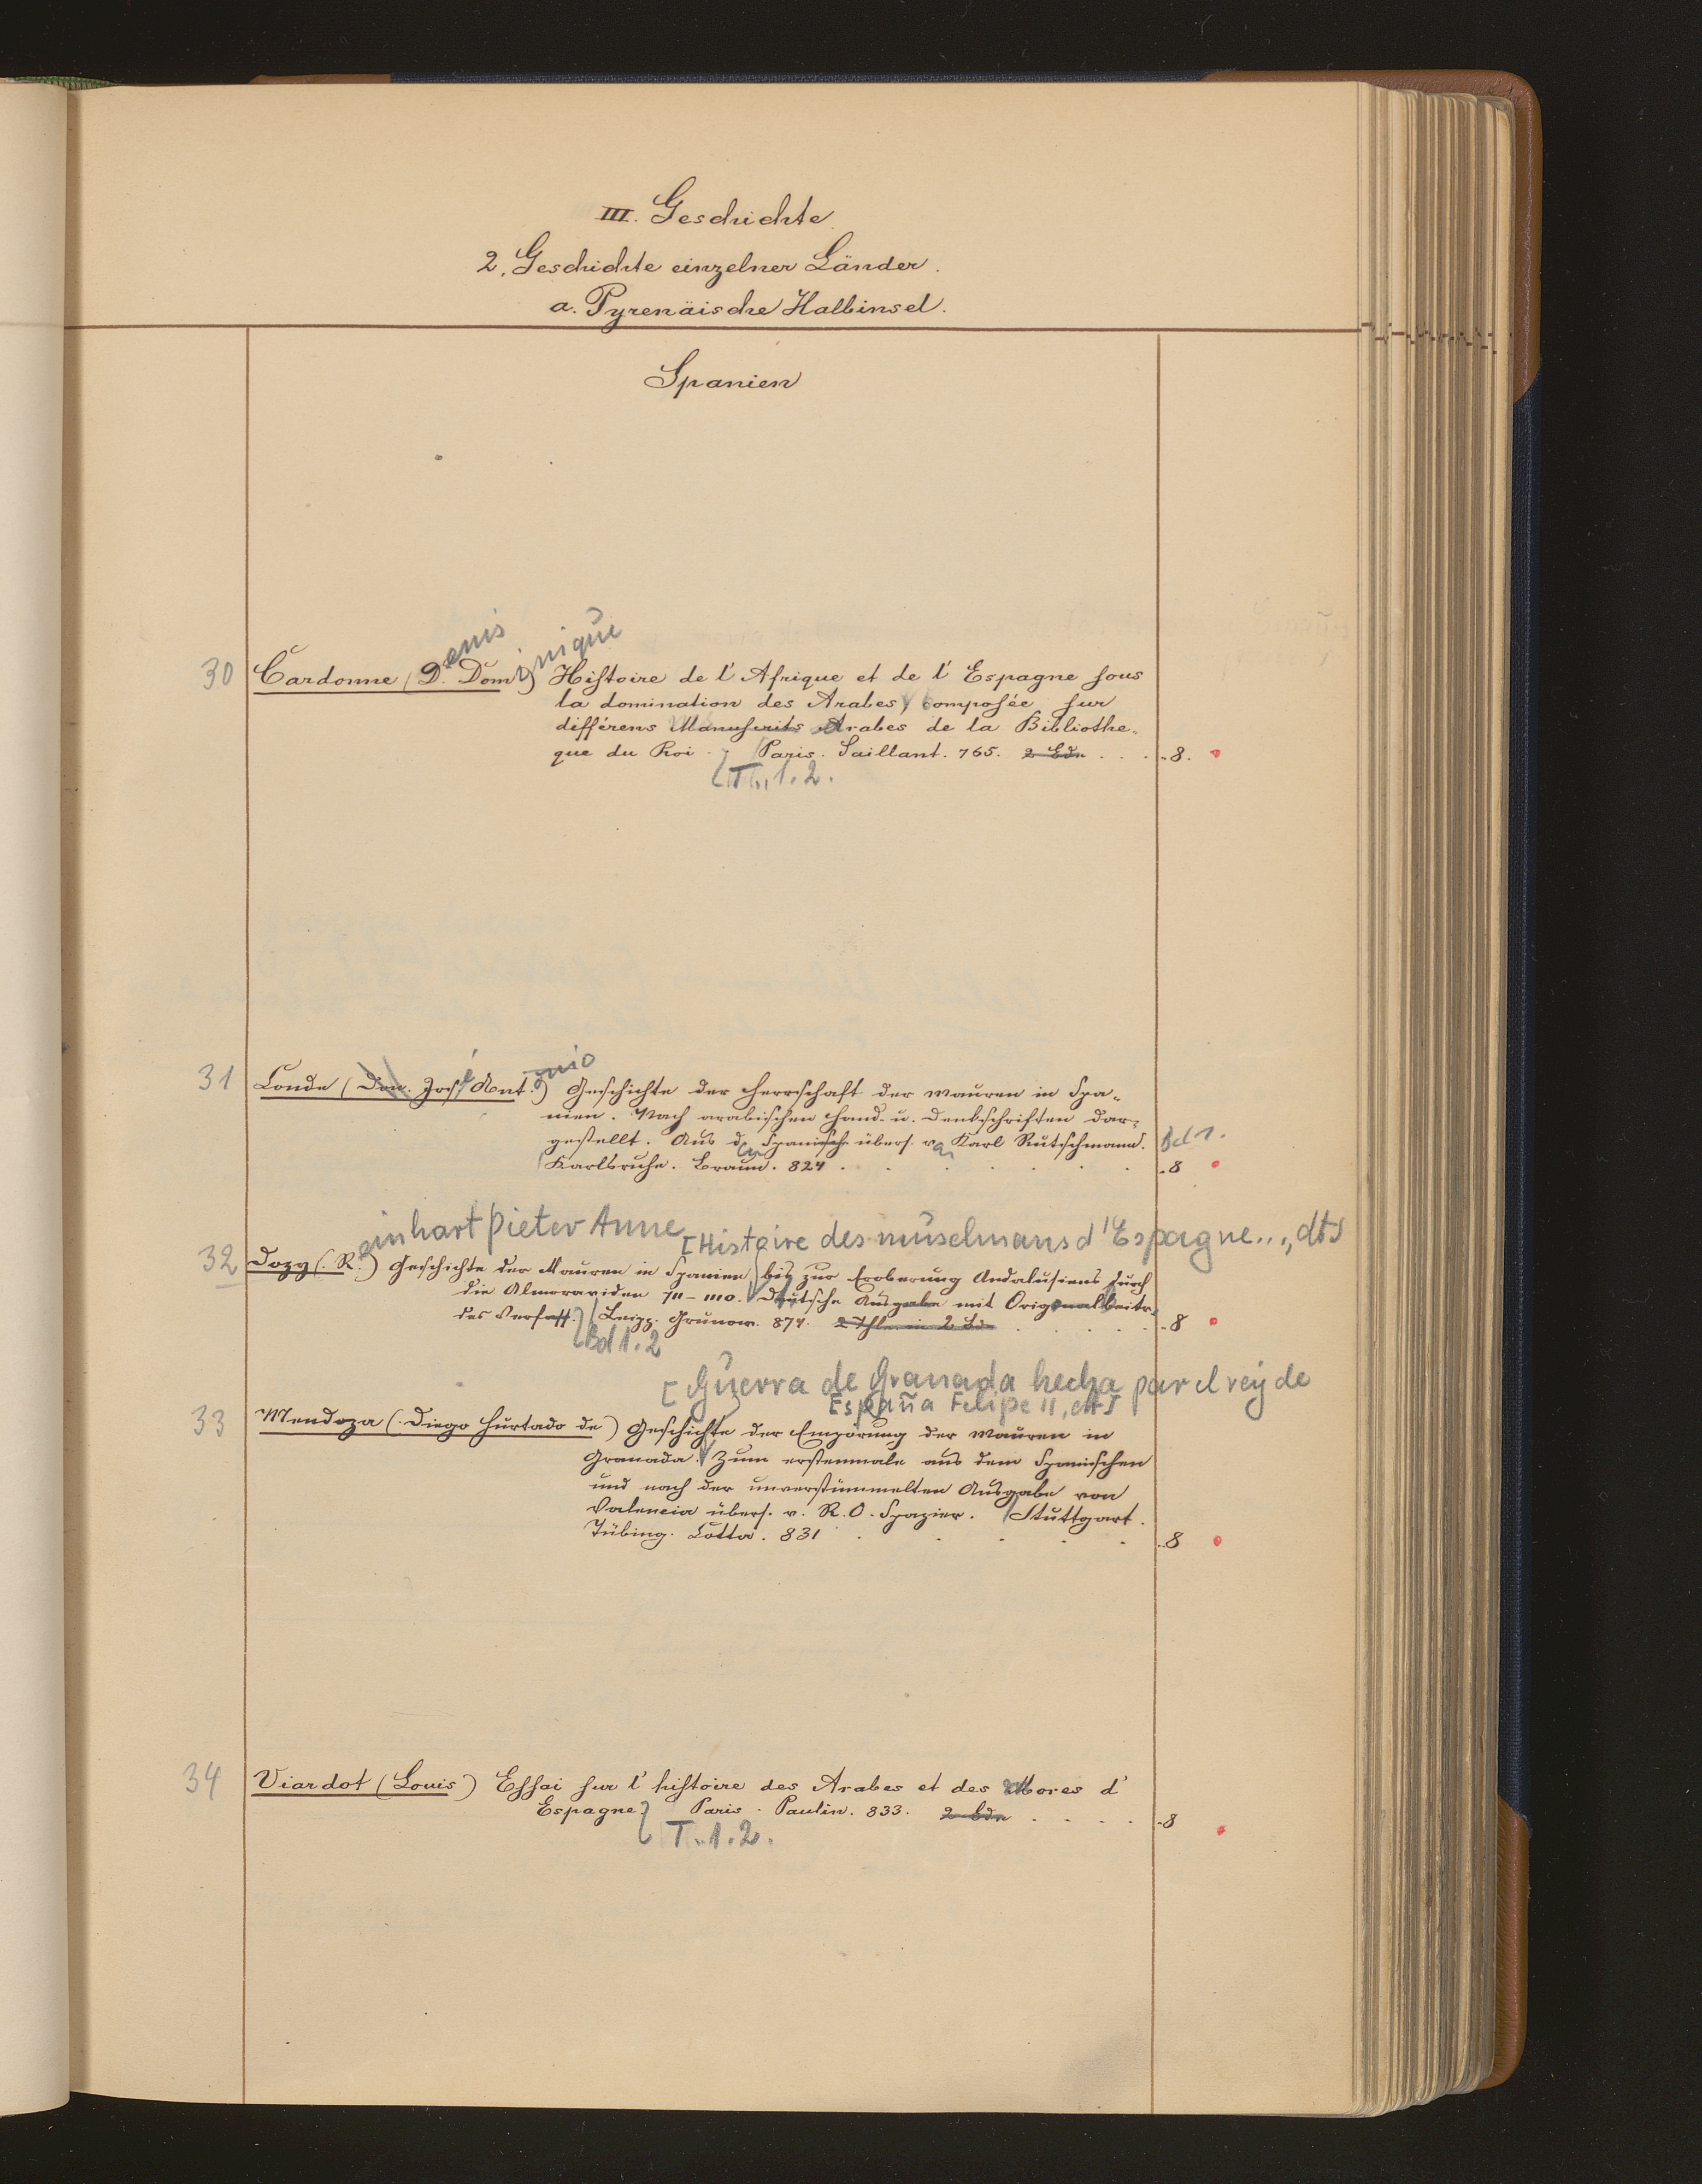 III. Geschichte
2. Geschichte einzelner Länder.
a. Pyrenäische Halbinsel.
Spanien
enis inique
30 Cardonne (D. Dom.) Histoire de l' Afrique et de l' Espagne sous
la domination des Arabes, composée sur
différens Manuscrits Arabes de la Bibliothe-
que du Roi. Paris. Saillant. 765. 2 Bde . . . 8.
T. 1. 2.
é onio
31 Conde (Don. Jos. Ant.) Geschichte der Herrschaft der Mauren in Spa-
nien. Nach arabischen Hand- u. Denkschriften dar-
gestellt. Aus d. Spanische übers. v. Karl Rutschmann. Bd 1.
Karlsruhe. Braun. 824 . . . . . 8
einhart Pieter Anne [Histoire des muselmans d'Espagne..., dt]
32 Dozy (R.) Geschichte der Mauren in Spanien bis zur Eroberung Andalusiens durch
die Almoraviden 711-1110. Deutsche Ausgabe mit Originalbeitr.
des Verfass. Leipz. Grunow. 874. 2 Thle in 2 Bde . . . . 8
Bd 1. 2
[Guerra de Granada hecha par el rey de
España Felipe II, dt]
33 Mendoza (Diego Hurtado de) Geschichte der Empörung der Mauren in
Granada. Zum erstenmale aus dem Spanischen
und nach der unverstümmelten Ausgabe von
Valencia übers. v. R. O. Spazier. Stuttgart.
Tübing. Cotta. 831 . . . . . 8
34 Viardot (Louis) Essai sur l' histoire des Arabes et des Mores d'
Espagne. Paris. Paulin. 833. 2 Bde . . . . 8
T. 1. 2.